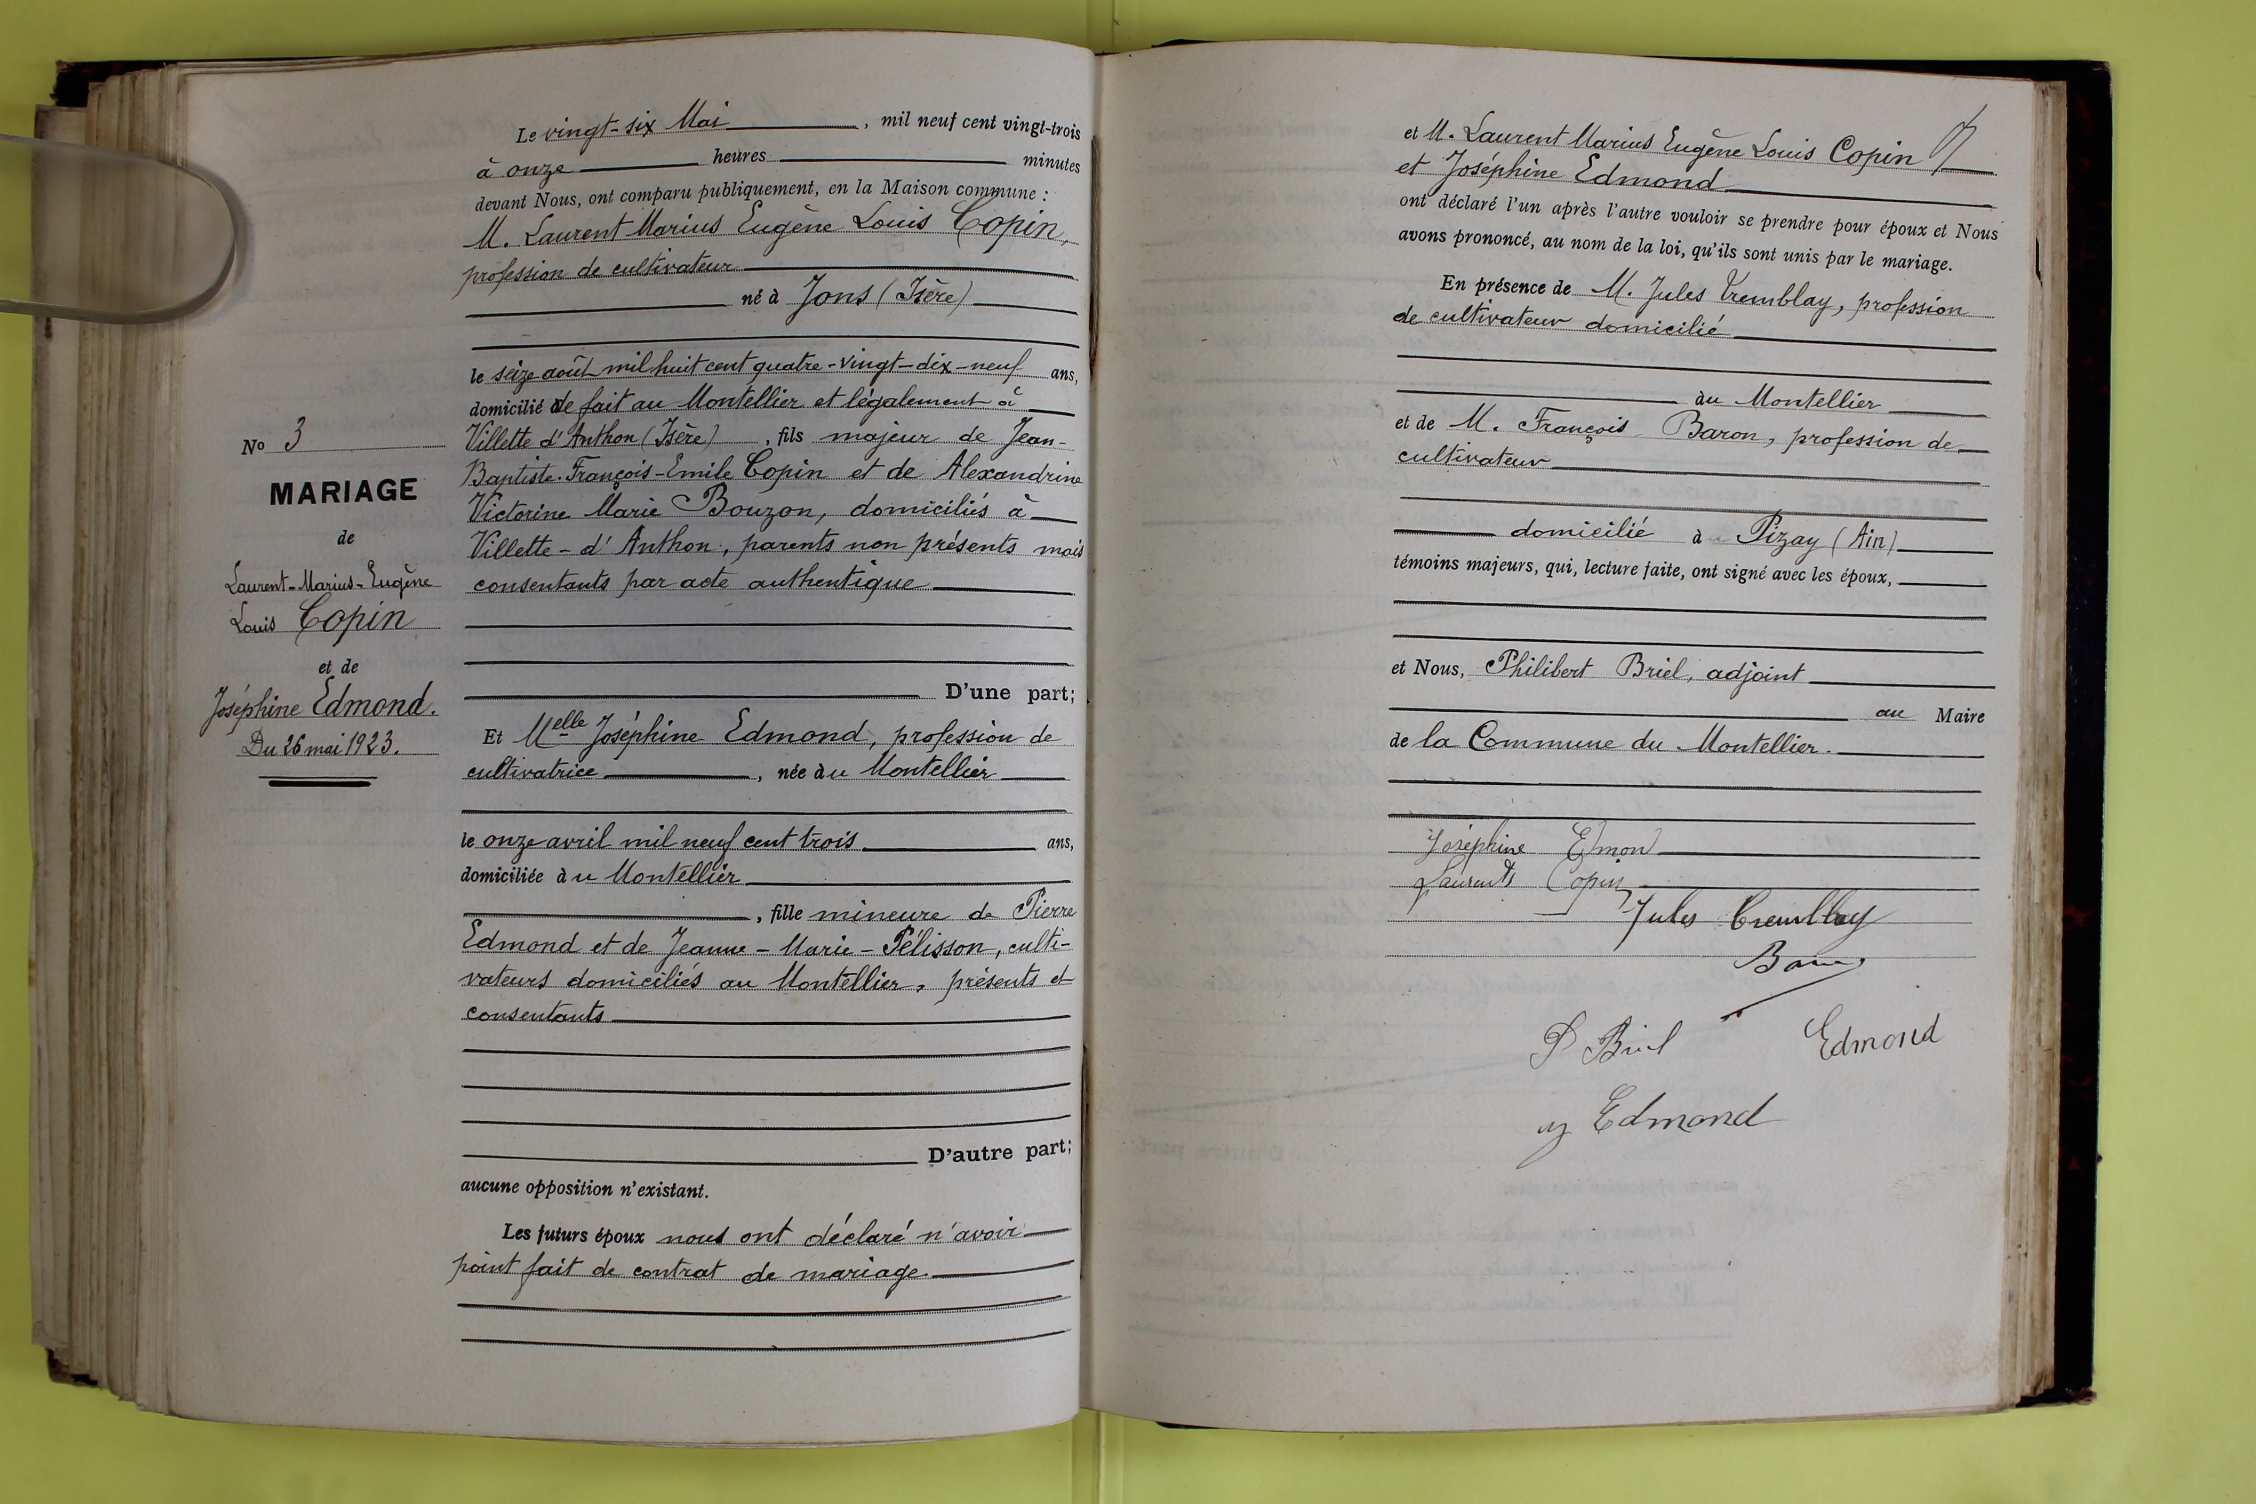 Le vingt-six Mai, mil neuf cent vingt-trois
à onze heures minutes
devant Nous, ont comparu publiquement, en la Maison commune :
M. Laurent Marius Eugène Louis Copin,
profession de cultivateur
né à Jons (Isère)
le seize août mil huit cent quatre-vingt-dix-neuf ans,
domicilié de fait au Montellier et légalement à
Villette d'Anthon (Isère), fils majeur de Jean-
Baptiste-François-Emile Copin et de Alexandrine
Victorine Marie Bouzon, domiciliés à
Villette-d'Anthon, parents non présents mais
consentants par acte authentique
D'une part;
No 3
MARIAGE
de
Laurent-Marius-Eugène
Louis Copin
et de
Joséphine Edmond.
Du 26 mai 1923.
Et Melle Joséphine Edmond, profession de
cultivatrice, née au Montellier
le onze avril mil neuf cent trois ans,
domiciliée au Montellier
, fille mineure de Pierre
Edmond et de Jeanne-Marie-Pélisson, culti-
vateurs domiciliés au Montellier, présents et
consentants
D'autre part;
aucune opposition n'existant.
Les futurs époux nous ont déclaré n'avoir
point fait de contrat de mariage.
et M. Laurent Marius Eugène Louis Copin
et Joséphine Edmond
ont déclaré l'un après l'autre vouloir se prendre pour époux et Nous
avons prononcé, au nom de la loi, qu'ils sont unis par le mariage.
En présence de M. Jules Tremblay, profession
de cultivateur domicilié
au Montellier
et de M. François Baron, profession de
cultivateur
domicilié à Pizay (Ain)
témoins majeurs, qui, lecture faite, ont signé avec les époux,
et Nous, Philibert Briel, adjoint
au Maire
de la Commune du Montellier.
Joséphine Edmond
Laurent Copin
Jules Tremblay
Baron
P Briel Edmond
Edmond